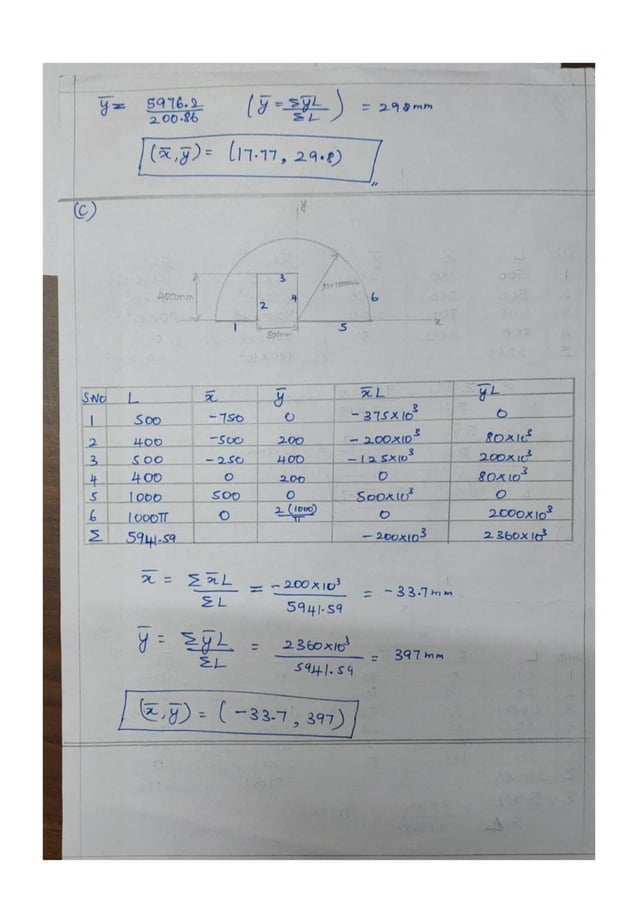 ȳ = 5976.2 / 200.86 (ȳ = ΣȳL / ΣL) = 298mm
(x̄,ȳ) = (17.77, 29.8)
(C)
y
3
400mm
2
4
r=1000mm
6
x
1
500mm
5
S.No L x̄ ȳ x̄L ȳL
1 500 -750 0 -375x10³ 0
2 400 -500 200 -200x10³ 80x10³
3 500 -250 400 -125x10³ 200x10³
4 400 0 200 0 80x10³
5 1000 500 0 500x10³ 0
6 1000π 0 2(1000)/π 0 2000x10³
Σ 5941.59 -200x10³ 2360x10³
x̄ = Σx̄L / ΣL = -200x10³ / 5941.59 = -33.7mm
ȳ = ΣȳL / ΣL = 2360x10³ / 5941.59 = 397mm
(x̄,ȳ) = (-33.7, 397)